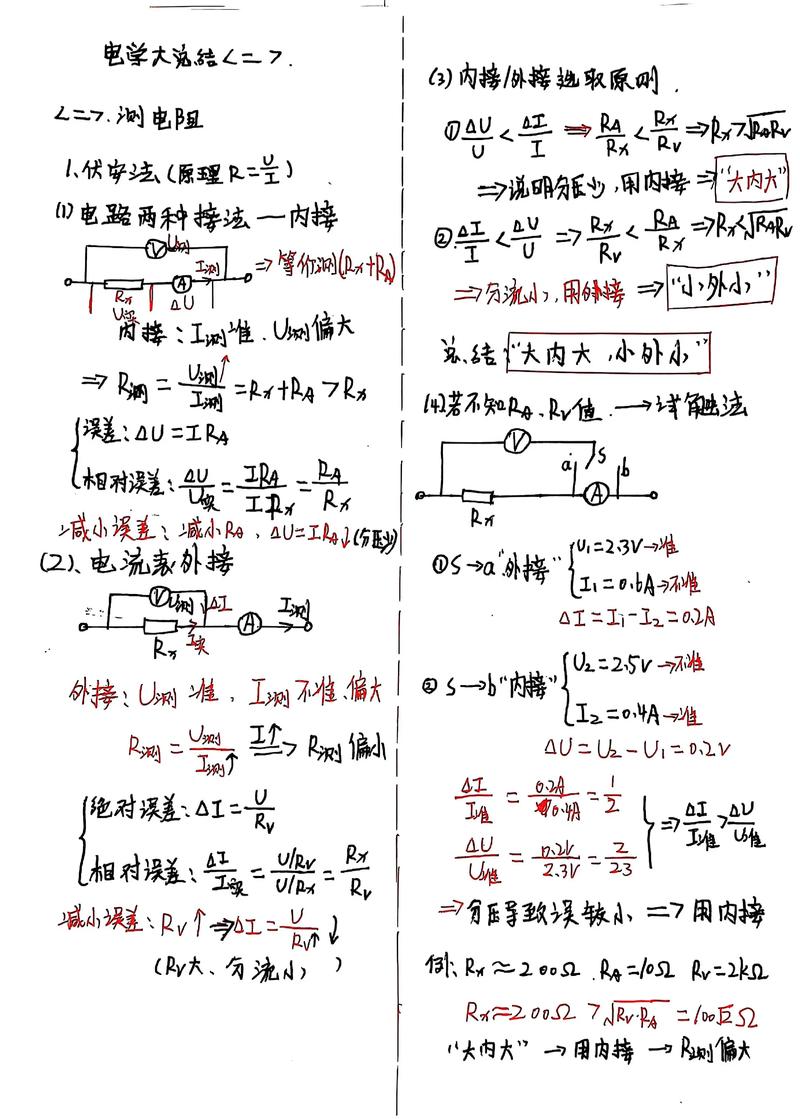 电学大总结<二>.
<二>.测电阻
1.伏安法(原理R=U/I)
(1)电路两种接法—内接
V U测
I测 ⇒等价测(Rx+RA)
Rx A ΔU
U实
内接：I测准、U测偏大
⇒ R测 = U测↑/I测 = Rx+RA > Rx
误差：ΔU=IRA
相对误差：ΔU/U实 = IRA/IRx = RA/Rx
减小误差：减小RA、ΔU=IRA↓(分压少)
(2)、电流表外接
V U测 ΔI I测
Rx I实 A
外接：U测准，I测不准、偏大
R测 = U测/I测↑ I↑⇒ R测偏小
绝对误差：ΔI=U/RV
相对误差：ΔI/I实 = U/RV / U/Rx = Rx/RV
减小误差：RV↑ ⇒ΔI=U/RV↑ ↓
(RV大、分流小)
(3)内接/外接选取原则.
①ΔU/U < ΔI/I ⇒ RA/Rx < Rx/RV ⇒Rx>√RARV
⇒说明分压少,用内接⇒"大内大"
②ΔI/I < ΔU/U ⇒ Rx/RV < RA/Rx ⇒Rx<√RARV
⇒分流小,用外接 ⇒ "小外小"
总结："大内大,小外小"
(4)若不知RA、RV值.→试触法
V S
a b
Rx A
①S→a"外接" U1=2.3V→准
I1=0.6A→不准
ΔI=I1-I2=0.2A
② S→b"内接" U2=2.5V→不准
I2=0.4A→准
ΔU=U2-U1=0.2V
ΔI/I准 = 0.2A/0.4A = 1/2
⇒ΔI/I准>ΔU/U准
ΔU/U准 = 0.2V/2.3V = 2/23
⇒分压导致误较小 ⇒用内接
例：Rx≈200Ω .RA=10Ω RV=2kΩ
Rx≈200Ω >√RV·RA =100√2Ω
"大内大" →用内接 →R测偏大